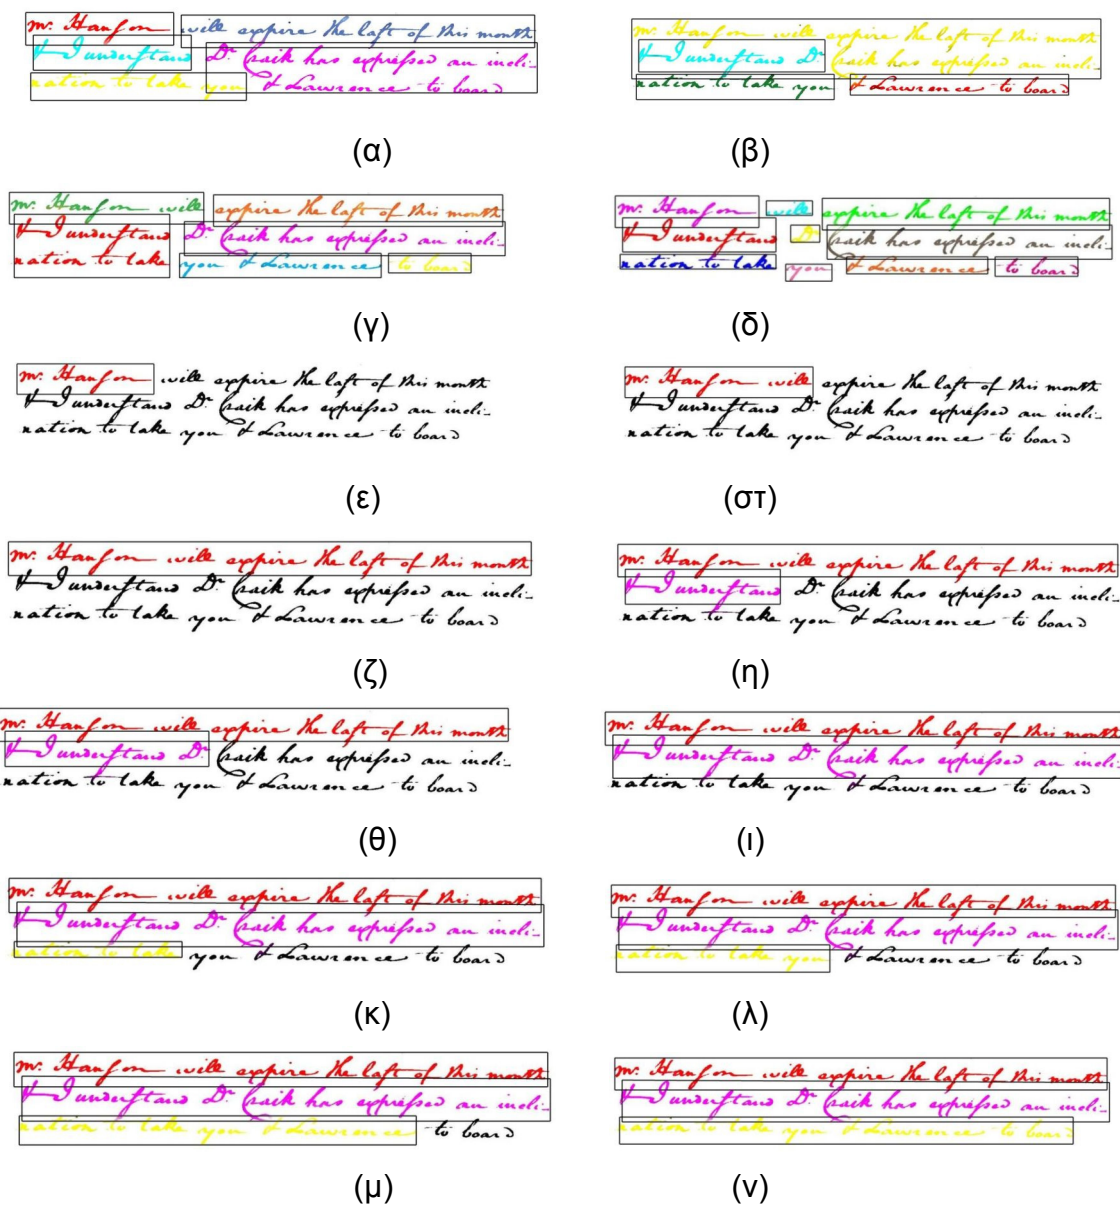 Mr. Hanſon will expire the laſt of this month
& I underſtand Dr. Craik has expreſsed an incli-
nation to take you & Lawrence to board
(α)
Mr. Hanſon will expire the laſt of this month
& I underſtand Dr. Craik has expreſsed an incli-
nation to take you & Lawrence to board
(β)
Mr. Hanſon will expire the laſt of this month
& I underſtand Dr. Craik has expreſsed an incli-
nation to take you & Lawrence to board
(γ)
Mr. Hanſon will expire the laſt of this month
& I underſtand Dr. Craik has expreſsed an incli-
nation to take you & Lawrence to board
(δ)
Mr. Hanſon will expire the laſt of this month
& I underſtand Dr. Craik has expreſsed an incli-
nation to take you & Lawrence to board
(ε)
Mr. Hanſon will expire the laſt of this month
& I underſtand Dr. Craik has expreſsed an incli-
nation to take you & Lawrence to board
(στ)
Mr. Hanſon will expire the laſt of this month
& I underſtand Dr. Craik has expreſsed an incli-
nation to take you & Lawrence to board
(ζ)
Mr. Hanſon will expire the laſt of this month
& I underſtand Dr. Craik has expreſsed an incli-
nation to take you & Lawrence to board
(η)
Mr. Hanſon will expire the laſt of this month
& I underſtand Dr. Craik has expreſsed an incli-
nation to take you & Lawrence to board
(θ)
Mr. Hanſon will expire the laſt of this month
& I underſtand Dr. Craik has expreſsed an incli-
nation to take you & Lawrence to board
(ι)
Mr. Hanſon will expire the laſt of this month
& I underſtand Dr. Craik has expreſsed an incli-
nation to take you & Lawrence to board
(κ)
Mr. Hanſon will expire the laſt of this month
& I underſtand Dr. Craik has expreſsed an incli-
nation to take you & Lawrence to board
(λ)
Mr. Hanſon will expire the laſt of this month
& I underſtand Dr. Craik has expreſsed an incli-
nation to take you & Lawrence to board
(μ)
Mr. Hanſon will expire the laſt of this month
& I underſtand Dr. Craik has expreſsed an incli-
nation to take you & Lawrence to board
(ν)